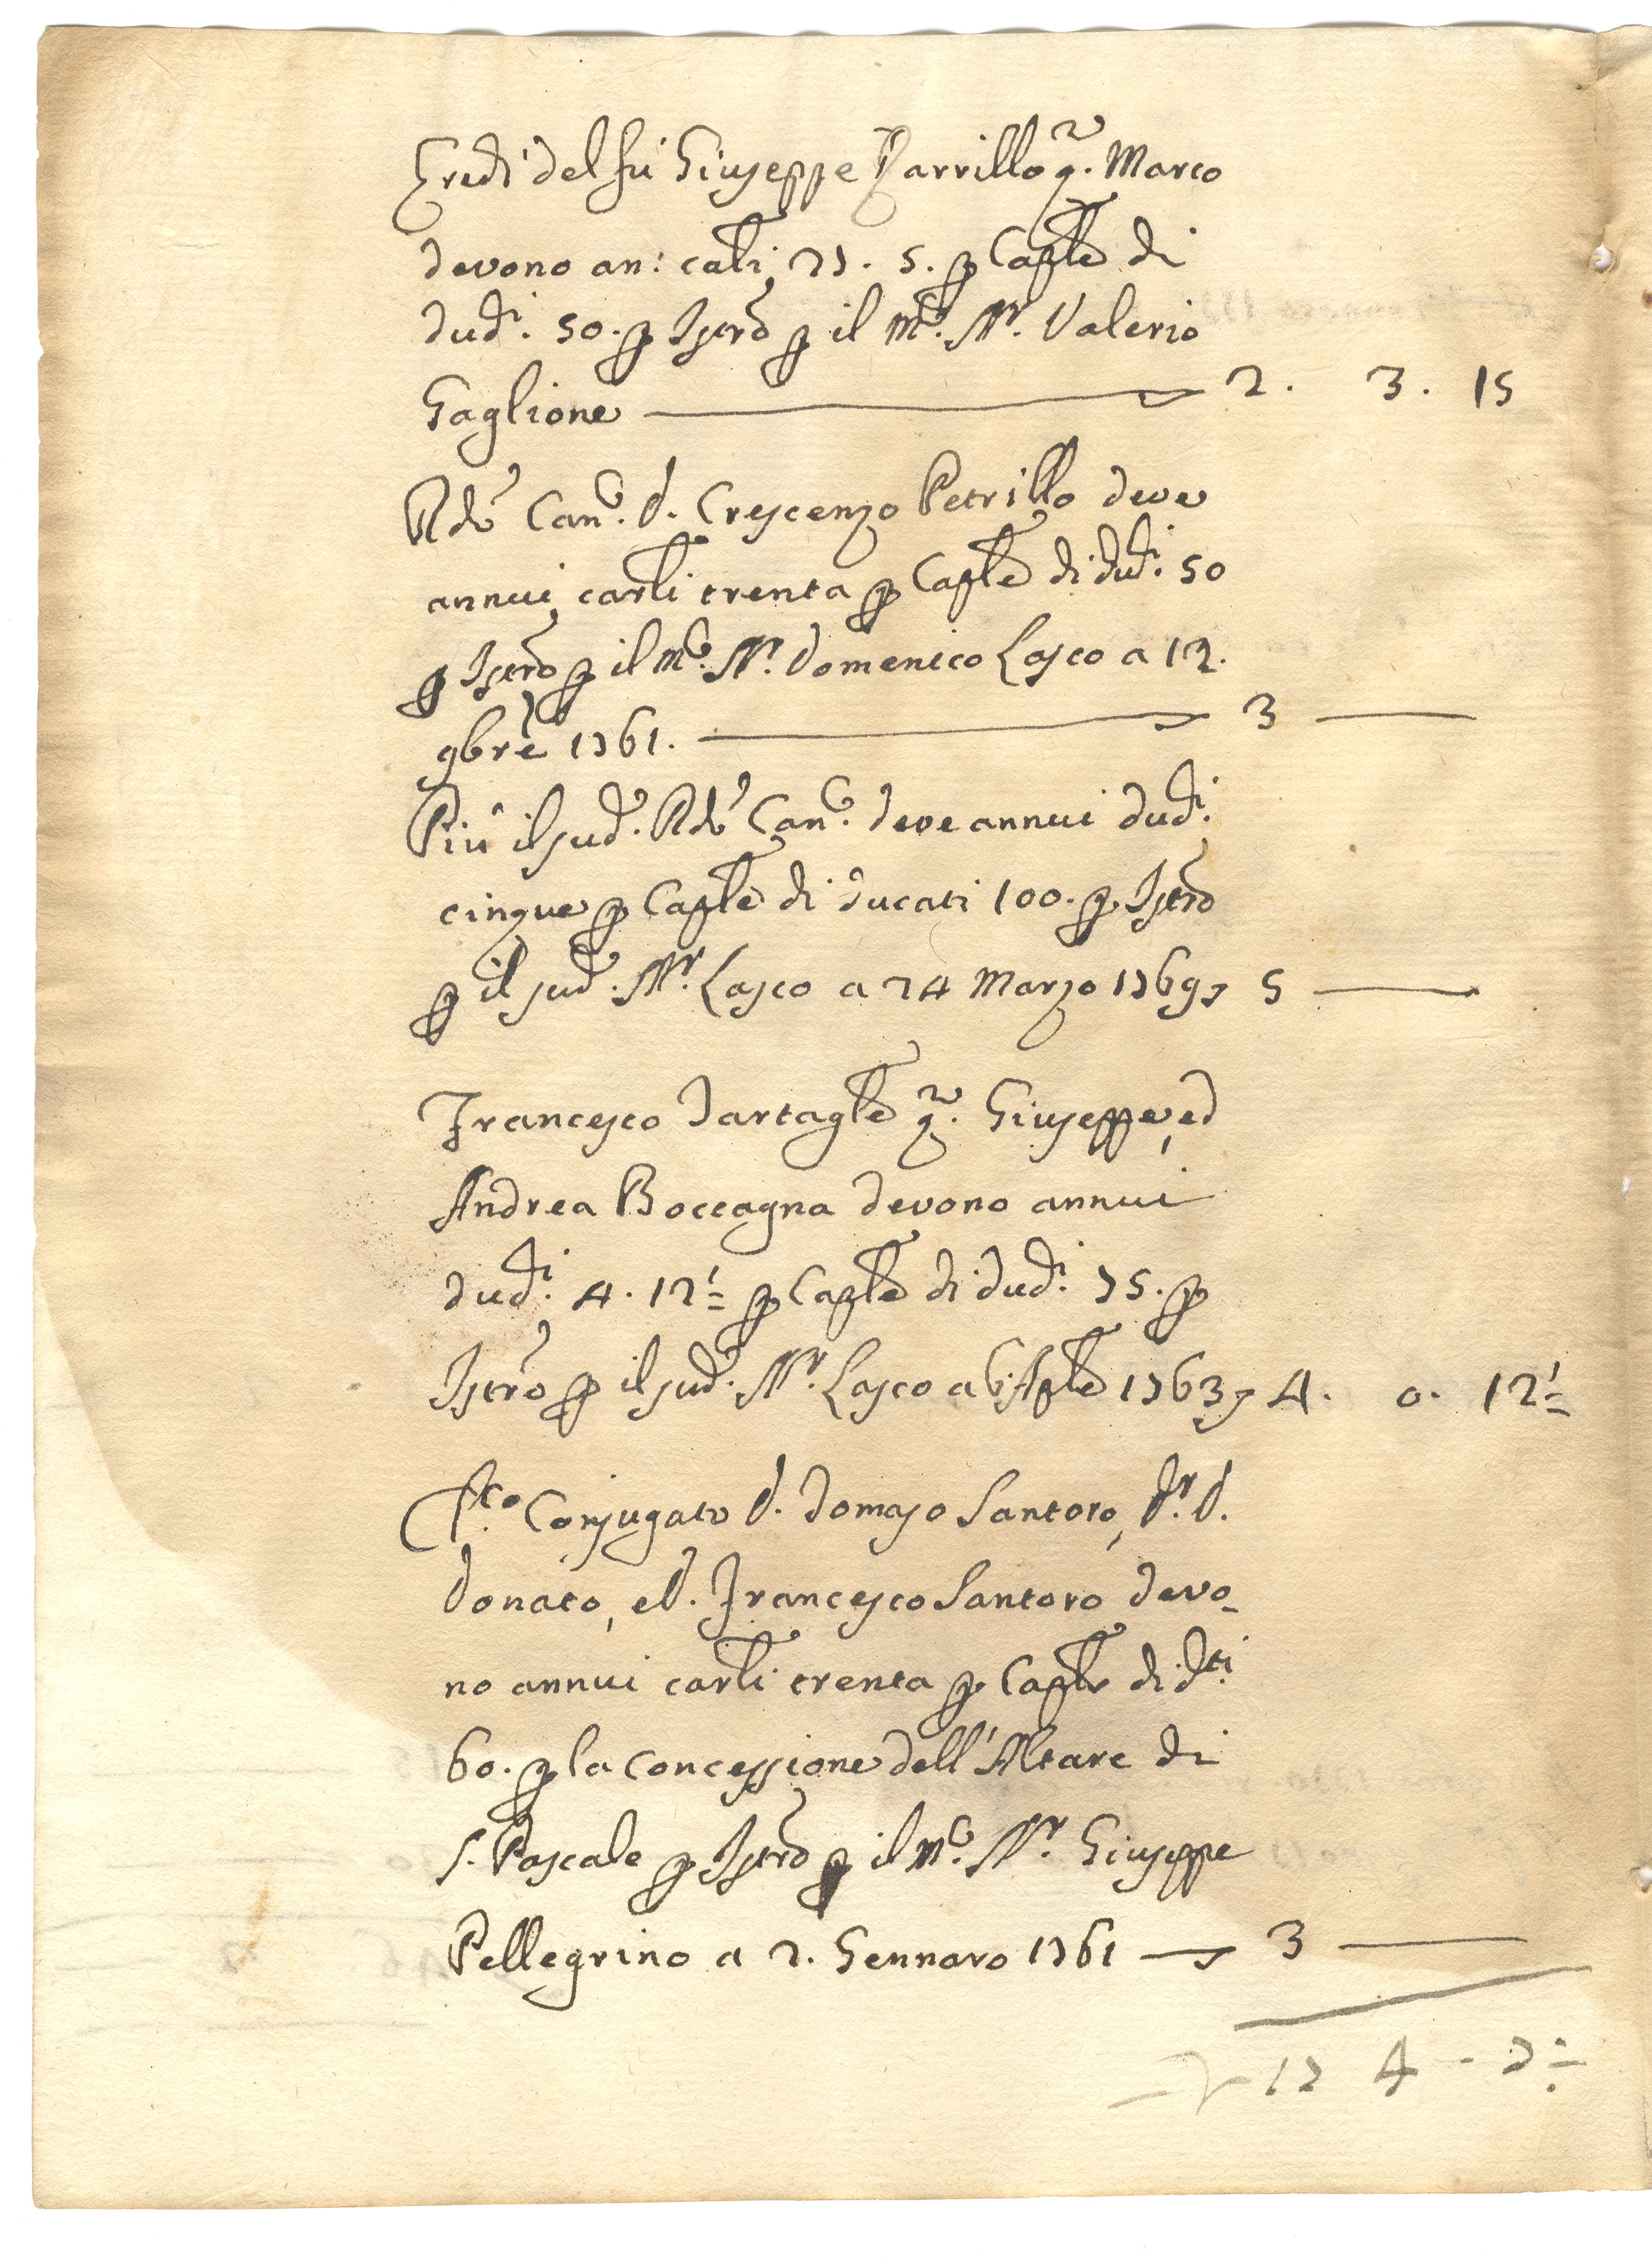 Eredi del fù Giuseppe Parrillo q. Marco
devono an: carli 27. 5. p Caple di
dudi. 50. p Istro p il mco. Nr. Valerio
Gaglione 2. 3. 15
Rdo Canco. D. Crescenzo Petrillo deve
annui carli trenta p Caple di dudi. 50
p Istro p il mco. Nr. Domenico Lasco a 12.
9bre 1761. 3
Più il sudo. Rdo Canco. deve annui dudi.
cinque p Caple di ducati 100. p Istro
p il sudo. Nr. Lasco a 24 Marzo 1769 5
Francesco Tartagle q. Giuseppe, ed
Andrea Boccagna devono annui
dudi. 4. 12½ p Caple di dudi. 75. p
Istro p il sudo. Nr. Lasco a 6. Aple 1763 4. 0. 12½
Conjugato D. Tomaso Santoro, Dr. D.
Donato, e D. Francesco Santoro devo-
no annui carli trenta p Caple di dti
60. p la Concessione dell'Altare di
S. Pascale p Istro p il mco. Nr. Giuseppe
Pellegrino a 2. Gennaro 1761 3
17 4 - 7½